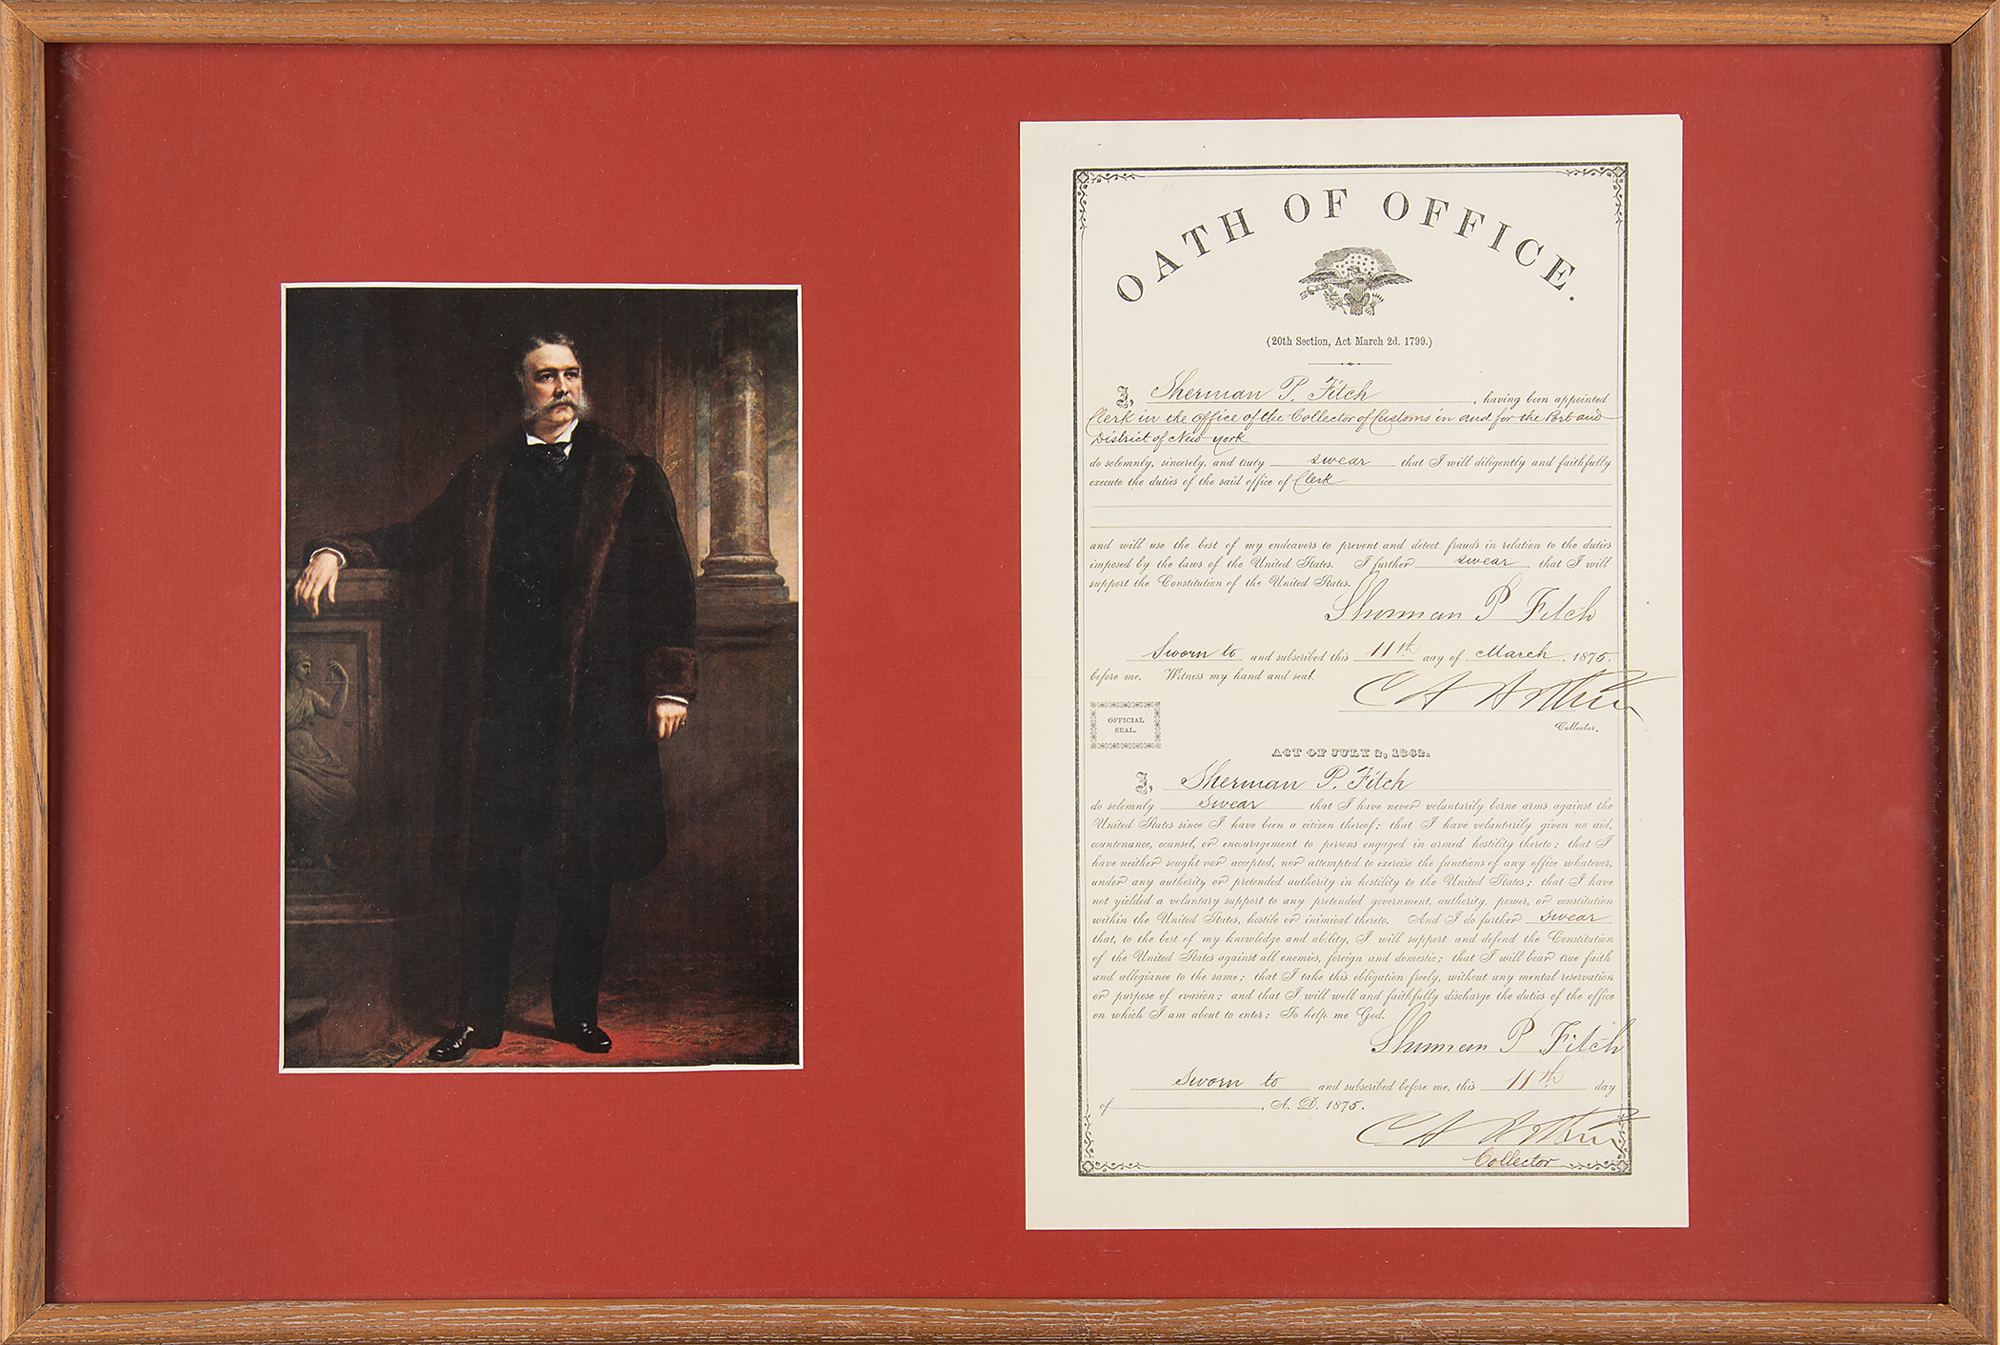 OATH OF OFFICE.
(20th Section, Act March 2d. 1799.)
I, Sherman P. Fitch, having been appointed
Clerk in the office of the Collector of Customs in and for the Port and
District of New York
do solemnly, sincerely, and truly swear that I will diligently and faithfully
execute the duties of the said office of Clerk
and will use the best of my endeavors to prevent and detect frauds in relation to the duties
imposed by the laws of the United States. I further swear that I will
support the Constitution of the United States.
Sherman P Fitch
Sworn to and subscribed this 11th day of March, 1875.
before me. Witness my hand and seal.
C A Arthur
Collector.
OFFICIAL
SEAL.
ACT OF JULY 2, 1862.
I, Sherman P. Fitch
do solemnly swear that I have never voluntarily borne arms against the
United States since I have been a citizen thereof; that I have voluntarily given no aid,
countenance, counsel, or encouragement to persons engaged in armed hostility thereto; that I
have neither sought nor accepted, nor attempted to exercise the functions of any office whatever,
under any authority or pretended authority in hostility to the United States; that I have
not yielded a voluntary support to any pretended government, authority, power, or constitution
within the United States, hostile or inimical thereto. And I do further swear
that, to the best of my knowledge and ability, I will support and defend the Constitution
of the United States against all enemies, foreign and domestic; that I will bear true faith
and allegiance to the same; that I take this obligation freely, without any mental reservation
or purpose of evasion; and that I will well and faithfully discharge the duties of the office
on which I am about to enter: So help me God.
Sherman P Fitch
Sworn to and subscribed before me, this 11th day
of , A. D. 1875.
C A Arthur
Collector